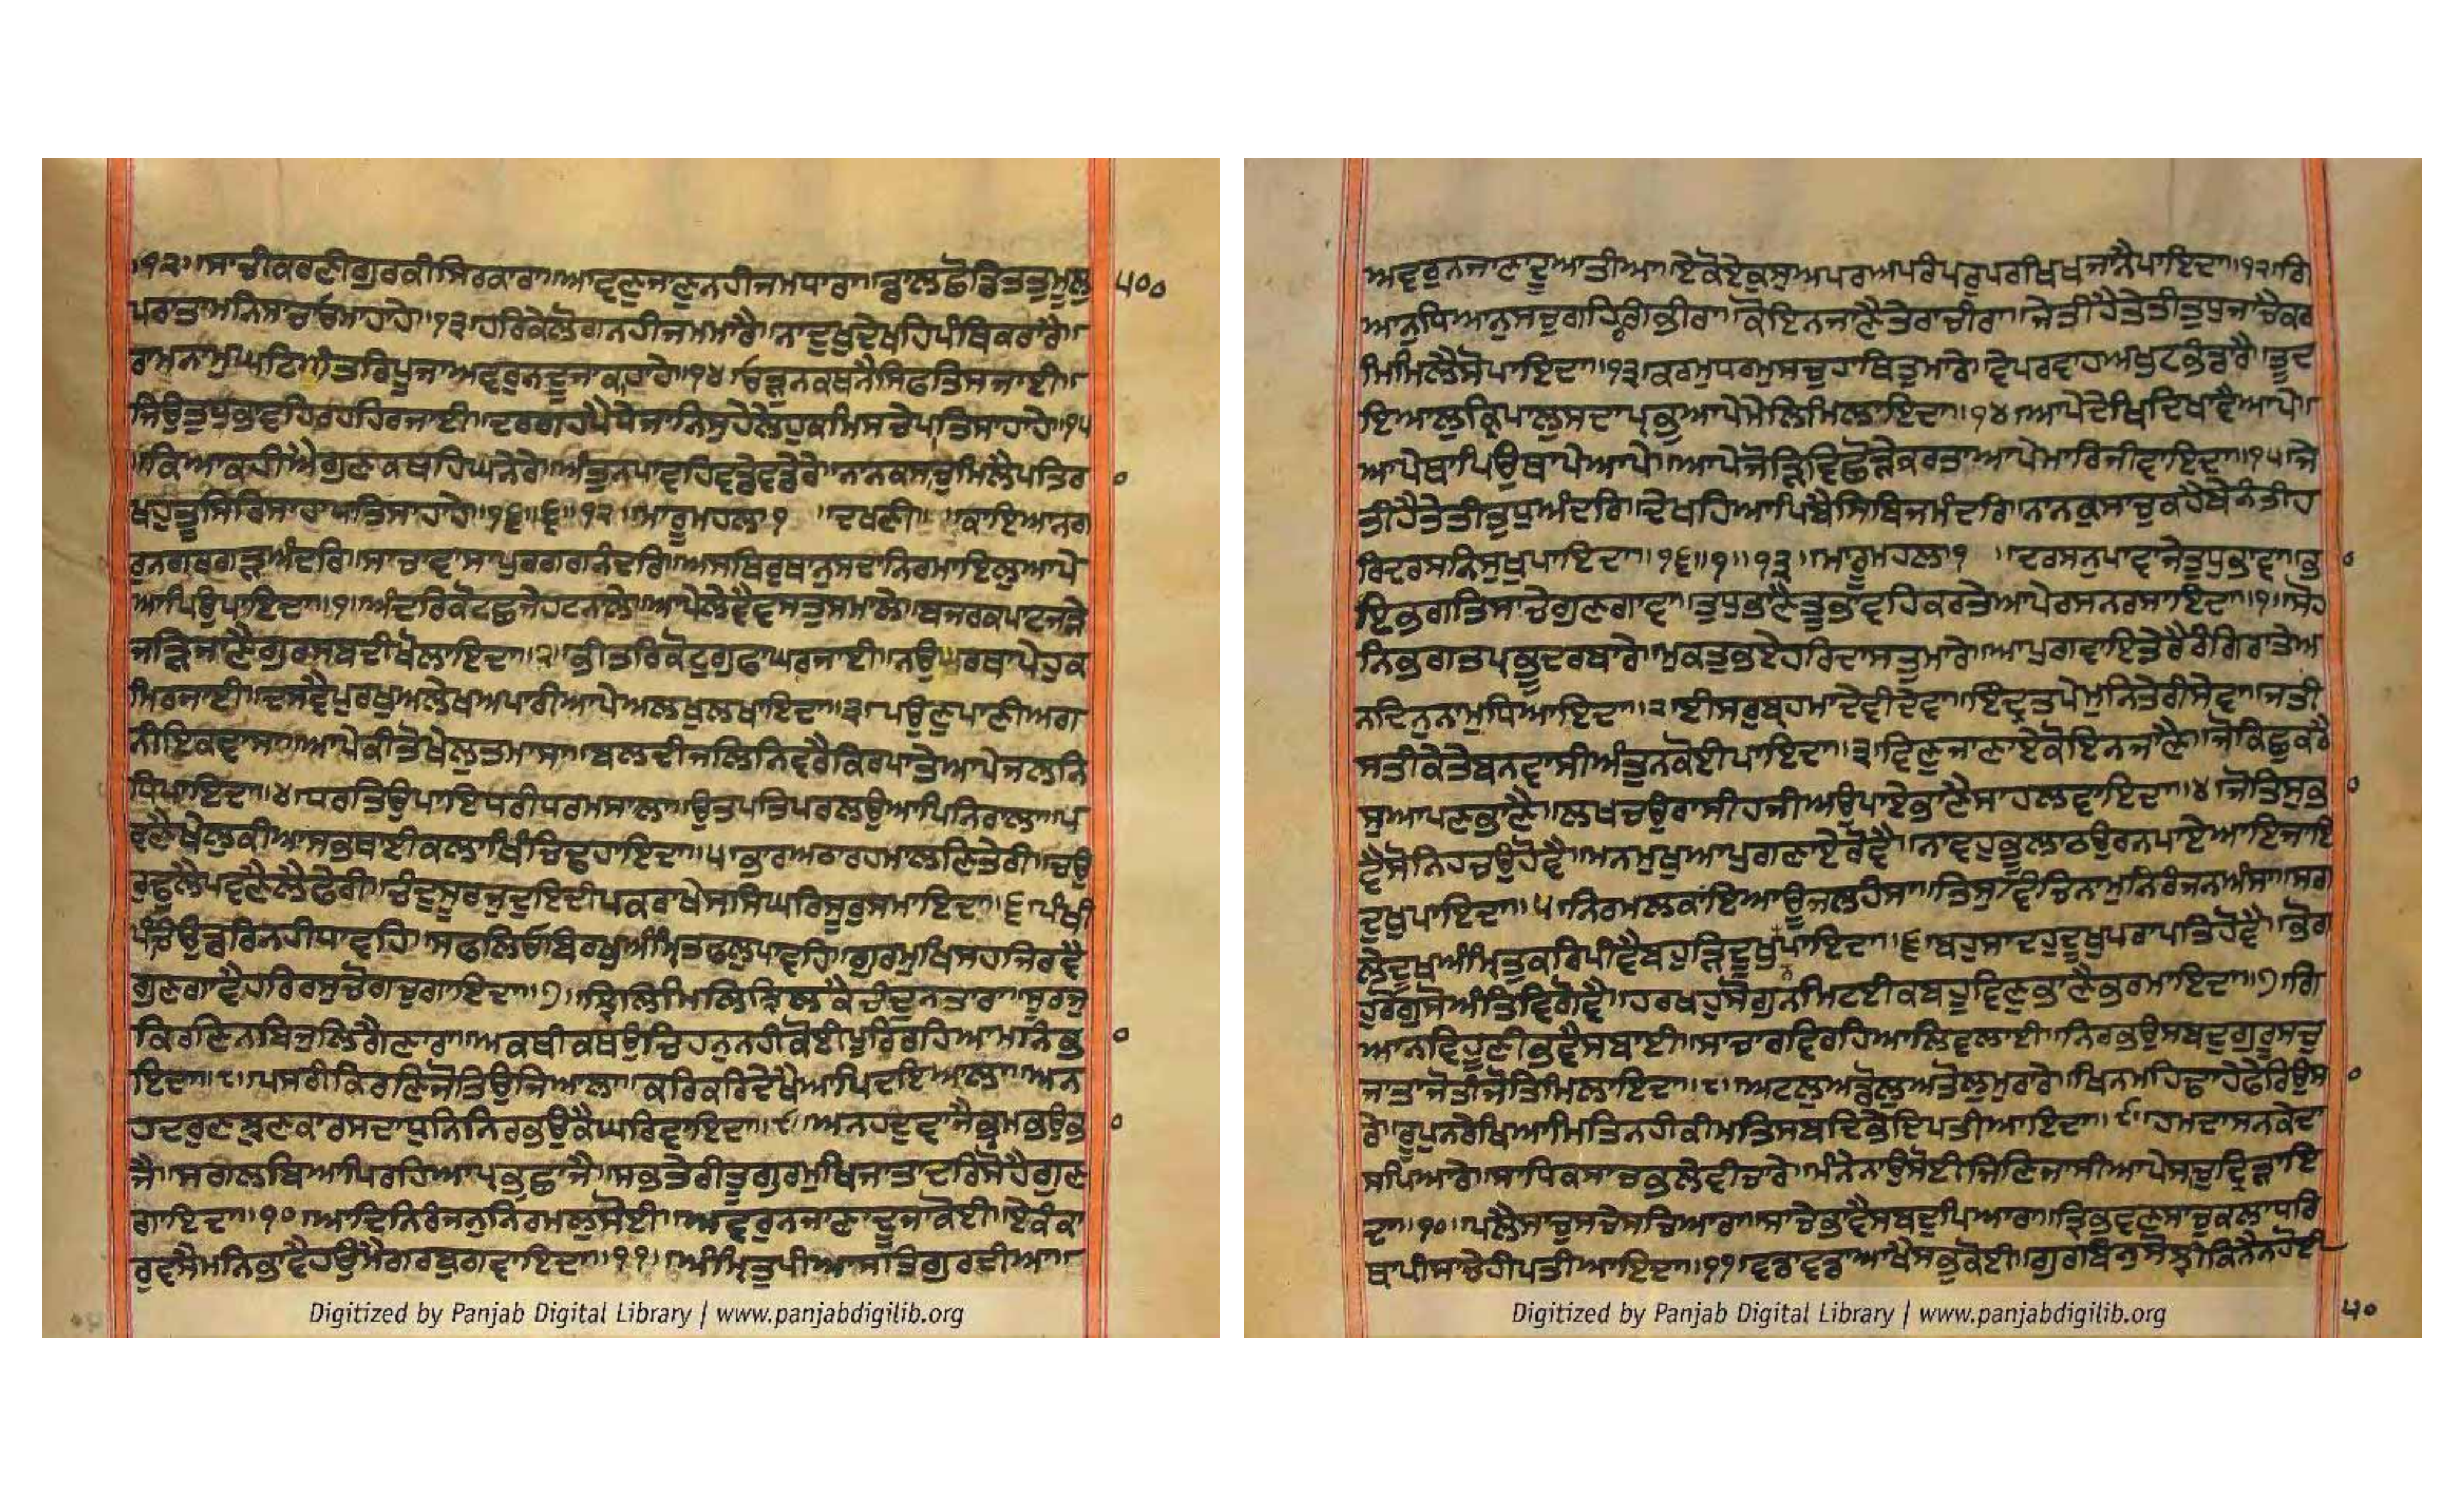 ।੧੨।।ਸਾਚੀਕਰਣੀਗੁਰਕੀਸਿਰਕਾਰਾ।।ਆਵਣੁਜਾਣੁਨਹੀਜਮਧਾਰਾ।।ਡਾਲਛੋਡਿਤਤੁਮੂਲੁ
੫੦੦
ਪਰਾਤਾਮਨਿਸਾਚਾਓਮਾਹਾਹੇ।।੧੩।ਹਰਿਕੇਲੋਗਨਹੀਜਮਮਾਰੈ।।ਨਾਦੁਖੁਦੇਖਹਿਪੰਥਿਕਰਾਰੈ।।
ਰਾਮਨਾਮੁਘਟਿਅੰਤਰਿਪੂਜਾਅਵਰੁਨਦੂਜਾਕਾਹਾਹੇ।।੧੪।ਓੜੁਨਕਥਨੈਸਿਫਤਿਸਜਾਈ।।
ਜਿਉਤੁਧੁਭਾਵਹਿਰਹਹਿਰਜਾਈ।।ਦਰਗਹਪੈਧੇਜਾਨਿਸੁਹੇਲੇਹੁਕਮਿਸਚੇਪਾਤਿਸਾਹਾਹੇ।।੧੫
।ਕਿਆਕਹੀਐਗੁਣਕਥਹਿਘਨੇਰੇ।।ਅੰਤੁਨਪਾਵਹਿਵਡੇਵਡੇਰੇ।।ਨਾਨਕਸਾਚੁਮਿਲੈਪਤਿਰਾ
ਖਹੁਤੂਸਿਰਿਸਾਹਾਪਾਤਿਸਾਹਾਹੇ।।੧੬।।੬।।੧੨।।ਮਾਰੂਮਹਲਾ੧ ।।ਦਖਣੀ।।ਕਾਇਆਨਗ
ਰੁਨਗਰਗੜਅੰਦਰਿ।।ਸਾਚਾਵਾਸਾਪੁਰਗਗਨੰਦਰਿ।।ਅਸਥਿਰੁਥਾਨੁਸਦਾਨਿਰਮਾਇਲੁਆਪੇ
ਆਪਿਉਪਾਇਦਾ।।੧।ਅੰਦਰਿਕੋਟਛਜੇਹਟਨਾਲੇ।।ਆਪੇਲੇਵੈਵਸਤੁਸਮਾਲੇ।।ਬਜਰਕਪਾਟਜੜੇ
ਜੜਿਜਾਣੈਗੁਰਸਬਦੀਖੋਲਾਇਦਾ।।੨।ਭੀਤਰਿਕੋਟਗੁਫਾਘਰਜਾਈ।।ਨਉਘਰਥਾਪੇਹੁਕ
ਮਿਰਜਾਈ।।ਦਸਵੈਪੁਰਖੁਅਲੇਖੁਅਪਾਰੀਆਪੇਅਲਖੁਲਖਾਇਦਾ।।੩।ਪਉਣੁਪਾਣੀਅਗ
ਨੀਇਕਵਾਸਾ।।ਆਪੇਕੀਤੋਖੇਲੁਤਮਾਸਾ।।ਬਲਦੀਜਲਿਨਿਵਰੈਕਿਰਪਾਤੇਆਪੇਜਲਨਿ
ਧਿਪਾਇਦਾ।।੪।ਧਰਤਿਉਪਾਇਧਰੀਧਰਮਸਾਲਾ।।ਉਤਪਤਿਪਰਲਉਆਪਿਨਿਰਾਲਾ।।ਪ
ਵਣੈਖੇਲੁਕੀਆਸਭਥਾਈਕਲਾਖਿੰਚਿਢਾਹਾਇਦਾ।।੫।ਭਾਰਅਠਾਰਹਮਾਲਣਿਤੇਰੀ।।ਚਉ
ਰੁਢੁਲੈਪਵਣੈਲੈਫੇਰੀ।।ਚੰਦੁਸੂਰਜੁਦੁਇਦੀਪਕਰਾਖੇਸਸਿਘਰਿਸੂਰੁਸਮਾਇਦਾ।।੬।ਪੰਖੀ
ਪੰਚਉਡਰਿਨਹੀਧਾਵਹਿ।।ਸਫਲਿਓਬਿਰਖੁਅੰਮ੍ਰਿਤਫਲੁਪਾਵਹਿ।।ਗੁਰਮੁਖਿਸਹਜਿਰਵੈ
ਗੁਣਗਾਵੈਹਰਿਰਸੁਚੋਗਚੁਗਾਇਦਾ।।੭।।ਝਿਲਿਮਿਲਿਝਿਲਕੈਚੰਦੁਨਤਾਰਾ।।ਸੂਰਜੁ
ਕਿਰਣਿਨਬਿਜੁਲਿਗੈਣਾਰਾ।।ਅਕਥੀਕਥਉਚਿਹਨੁਨਹੀਕੋਈਪੂਰਿਰਹਿਆਮਨਿਭਾ
ਇਦਾ।।੮।।ਪਸਰੀਕਿਰਣਿਜੋਤਿਉਜਿਆਲਾ।।ਕਰਿਕਰਿਦੇਖੈਆਪਿਦਇਆਲਾ।।ਅਨ
ਹਦਰੁਣਝੁਣਕਾਰਸਦਾਧੁਨਿਨਿਰਭਉਕੈਘਰਿਵਾਇਦਾ।।੯।।ਅਨਹਦੁਵਾਜੈਭ੍ਰਮੁਭਉਭਾ
ਜੈ।।ਸਗਲਬਿਆਪਿਰਹਿਆਪ੍ਰਭੁਛਾਜੈ।।ਸਭਤੇਰੀਤੂਗੁਰਮੁਖਿਜਾਤਾਦਰਿਸੋਹੈਗੁਣ
ਗਾਇਦਾ।।੧੦।।ਆਦਿਨਿਰੰਜਨੁਨਿਰਮਲੁਸੋਈ।।ਅਵਰੁਨਜਾਣਾਦੂਜਾਕੋਈ।।ਏਕੰਕਾ
ਰੁਵਸੈਮਨਿਭਾਵੈਹਉਮੈਗਰਬੁਗਵਾਇਦਾ।।੧੧।।ਅੰਮ੍ਰਿਤੁਪੀਆਸਤਿਗੁਰਦੀਆ।।
Digitized by Panjab Digital Library | www.panjabdigilib.org
ਅਵਰੁਨਜਾਣਾਦੂਆਤੀਆ।।ਏਕੋਏਕੁਸੁਅਪਰਅਪਰੰਪਰੁਪਰਖਿਖਜਾਨੈਪਾਇਦਾ।।੧੨।ਗਿ
ਆਨੁਧਿਆਨੁਸਚੁਗਹਿਰਗੰਭੀਰਾ।।ਕੋਇਨਜਾਣੈਤੇਰਾਚੀਰਾ।।ਜੇਤੀਹੈਤੇਤੀਤੁਧੁਜਾਚੈਕਰ
ਮਿਮਿਲੈਸੋਪਾਇਦਾ।।੧੩।ਕਰਮੁਧਰਮੁਸਚੁਹਾਥਿਤੁਮਾਰੇ।।ਵੇਪਰਵਾਹਅਖੁਟਭੰਡਾਰੈ।।ਤੂਦ
ਇਆਲੁਕਿਰਪਾਲੁਸਦਾਪ੍ਰਭੁਆਪੇਮੇਲਿਮਿਲਾਇਦਾ।।੧੪।।ਆਪੇਦੇਖਿਦਿਖਾਵੈਆਪੇ।।
ਆਪੇਥਾਪਿਉਥਾਪੇਆਪੇ।।ਆਪੇਜੋੜਿਵਿਛੋੜੇਕਰਤਾਆਪੇਮਾਰਿਜੀਵਾਇਦਾ।।੧੫।ਜੇ
ਤੀਹੈਤੇਤੀਤੁਧੁਅੰਦਰਿ।।ਦੇਖਹਿਆਪਿਬੈਸਿਬਿਜਮੰਦਰਿ।।ਨਾਨਕੁਸਾਚੁਕਹੈਬੇਨੰਤੀਹ
ਰਿਦਰਸਨਿਸੁਖੁਪਾਇਦਾ।।੧੬।।੧।।੧੩।।ਮਾਰੂਮਹਲਾ੧ ।।ਦਰਸਨੁਪਾਵਾਜੇਤੁਧੁਭਾਵਾ।।ਭਾ
ਇਭਗਤਿਸਾਚੇਗੁਣਗਾਵਾ।।ਤੁਧੁਭਾਣੈਤੂਭਾਵਹਿਕਰਤੇਆਪੇਰਸਨਰਸਾਇਦਾ।।੧।।ਸੋਹ
ਨਿਭਗਤਪ੍ਰਭੂਦਰਬਾਰੇ।।ਮੁਕਤੁਭਏਹਰਿਦਾਸਤੁਮਾਰੇ।।ਆਪੁਗਵਾਇਤੇਰੈਰੰਗਿਰਾਤੇਅ
ਨਦਿਨੁਨਾਮੁਧਿਆਇਦਾ।।੨।ਈਸਰੁਬ੍ਰਹਮਾਦੇਵੀਦੇਵਾ।।ਇੰਦ੍ਰਤਪੇਮੁਨਿਤੇਰੀਸੇਵਾ।।ਜਤੀ
ਸਤੀਕੇਤੇਬਨਵਾਸੀਅੰਤੁਨਕੋਈਪਾਇਦਾ।।੩।ਵਿਣੁਜਾਣਾਏਕੋਇਨਜਾਣੈ।।ਜੋਕਿਛੁਕਰੈ
ਸੁਆਪਣਭਾਣੈ।।ਲਖਚਉਰਾਸੀਹਜੀਅਉਪਾਏਭਾਣੈਸਾਹਲਵਾਇਦਾ।।੪।ਜੋਤਿਸੁਭਾ
ਵੈਸੋਨਿਹਚਉਹੋਵੈ।।ਮਨਮੁਖੁਆਪੁਗਣਾਏਰੋਵੈ।।ਨਾਵਹੁਭੁਲਾਠਉਰਨਪਾਏਆਇਜਾਇ
ਦੁਖੁਪਾਇਦਾ।।੫।ਨਿਰਮਲਕਾਇਆਊਜਲਹੰਸਾ।।ਤਿਸੁਵਿਚਿਨਾਮੁਨਿਰੰਜਨਅੰਸਾ।।ਸਗ
ਲੇਦੂਖਅੰਮ੍ਰਿਤੁਕਰਿਪੀਵੈਬਾਹੁੜਿਦੂਖੁਨਪਾਇਦਾ।।੬।ਬਹੁਸਾਦਹੁਦੂਖੁਪਰਾਪਤਿਹੋਵੈ।।ਭੋਗ
ਹੁਰੋਗੁਸੋਅੰਤਿਵਿਗੋਵੈ।।ਹਰਖਹੁਸੋਗੁਨਮਿਟਈਕਬਹੂਵਿਣੁਭਾਣੈਭਰਮਾਇਦਾ।।੭।ਗਿ
ਆਨਵਿਹੂਣੀਭਵੈਸਬਾਈ।।ਸਾਚਾਰਵਿਰਹਿਆਲਿਵਲਾਈ।।ਨਿਰਭਉਸਬਦੁਗੁਰੂਸਚੁ
ਜਾਤਾਜੋਤੀਜੋਤਿਮਿਲਾਇਦਾ।।੮।।ਅਟਲੁਅਡੋਲੁਅਤੋਲੁਮੁਰਾਰੇ।।ਖਿਨਮਹਿਢਾਹੇਫੇਰਿਉਸਾ
ਰੇ।।ਰੂਪੁਨਰੇਖਿਆਮਿਤਿਨਹੀਕੀਮਤਿਸਬਦਿਭੇਦਿਪਤੀਆਇਦਾ।।੯।।ਹਮਦਾਸਨਕੇਦਾ
ਸਪਿਆਰੇ।।ਸਾਧਿਕਸਾਚਭਲੇਵੀਚਾਰੇ।।ਮੰਨੇਨਾਉਸੋਈਜਿਣਿਜਾਸੀਆਪੇਸਾਚੁਦ੍ਰਿੜਾਇ
ਦਾ।।੧੦।।ਪਲੈਸਾਚੁਸਚੇਸਚਿਆਰਾ।।ਸਾਚੇਭਾਵੈਸਬਦੁਪਿਆਰਾ।।ਤ੍ਰਿਭਵਣਸਾਚੁਕਲਾਧਰਿ
ਥਾਪੀਸਾਚੇਹੀਪਤੀਆਇਦਾ।।੧੧।ਵਡਾਵਡਾਆਖੈਸਭੁਕੋਈ।।ਗੁਰਬਿਨੁਸੋਝੀਕਿਨੈਨਹੋਈ
Digitized by Panjab Digital Library | www.panjabdigilib.org
੫੦